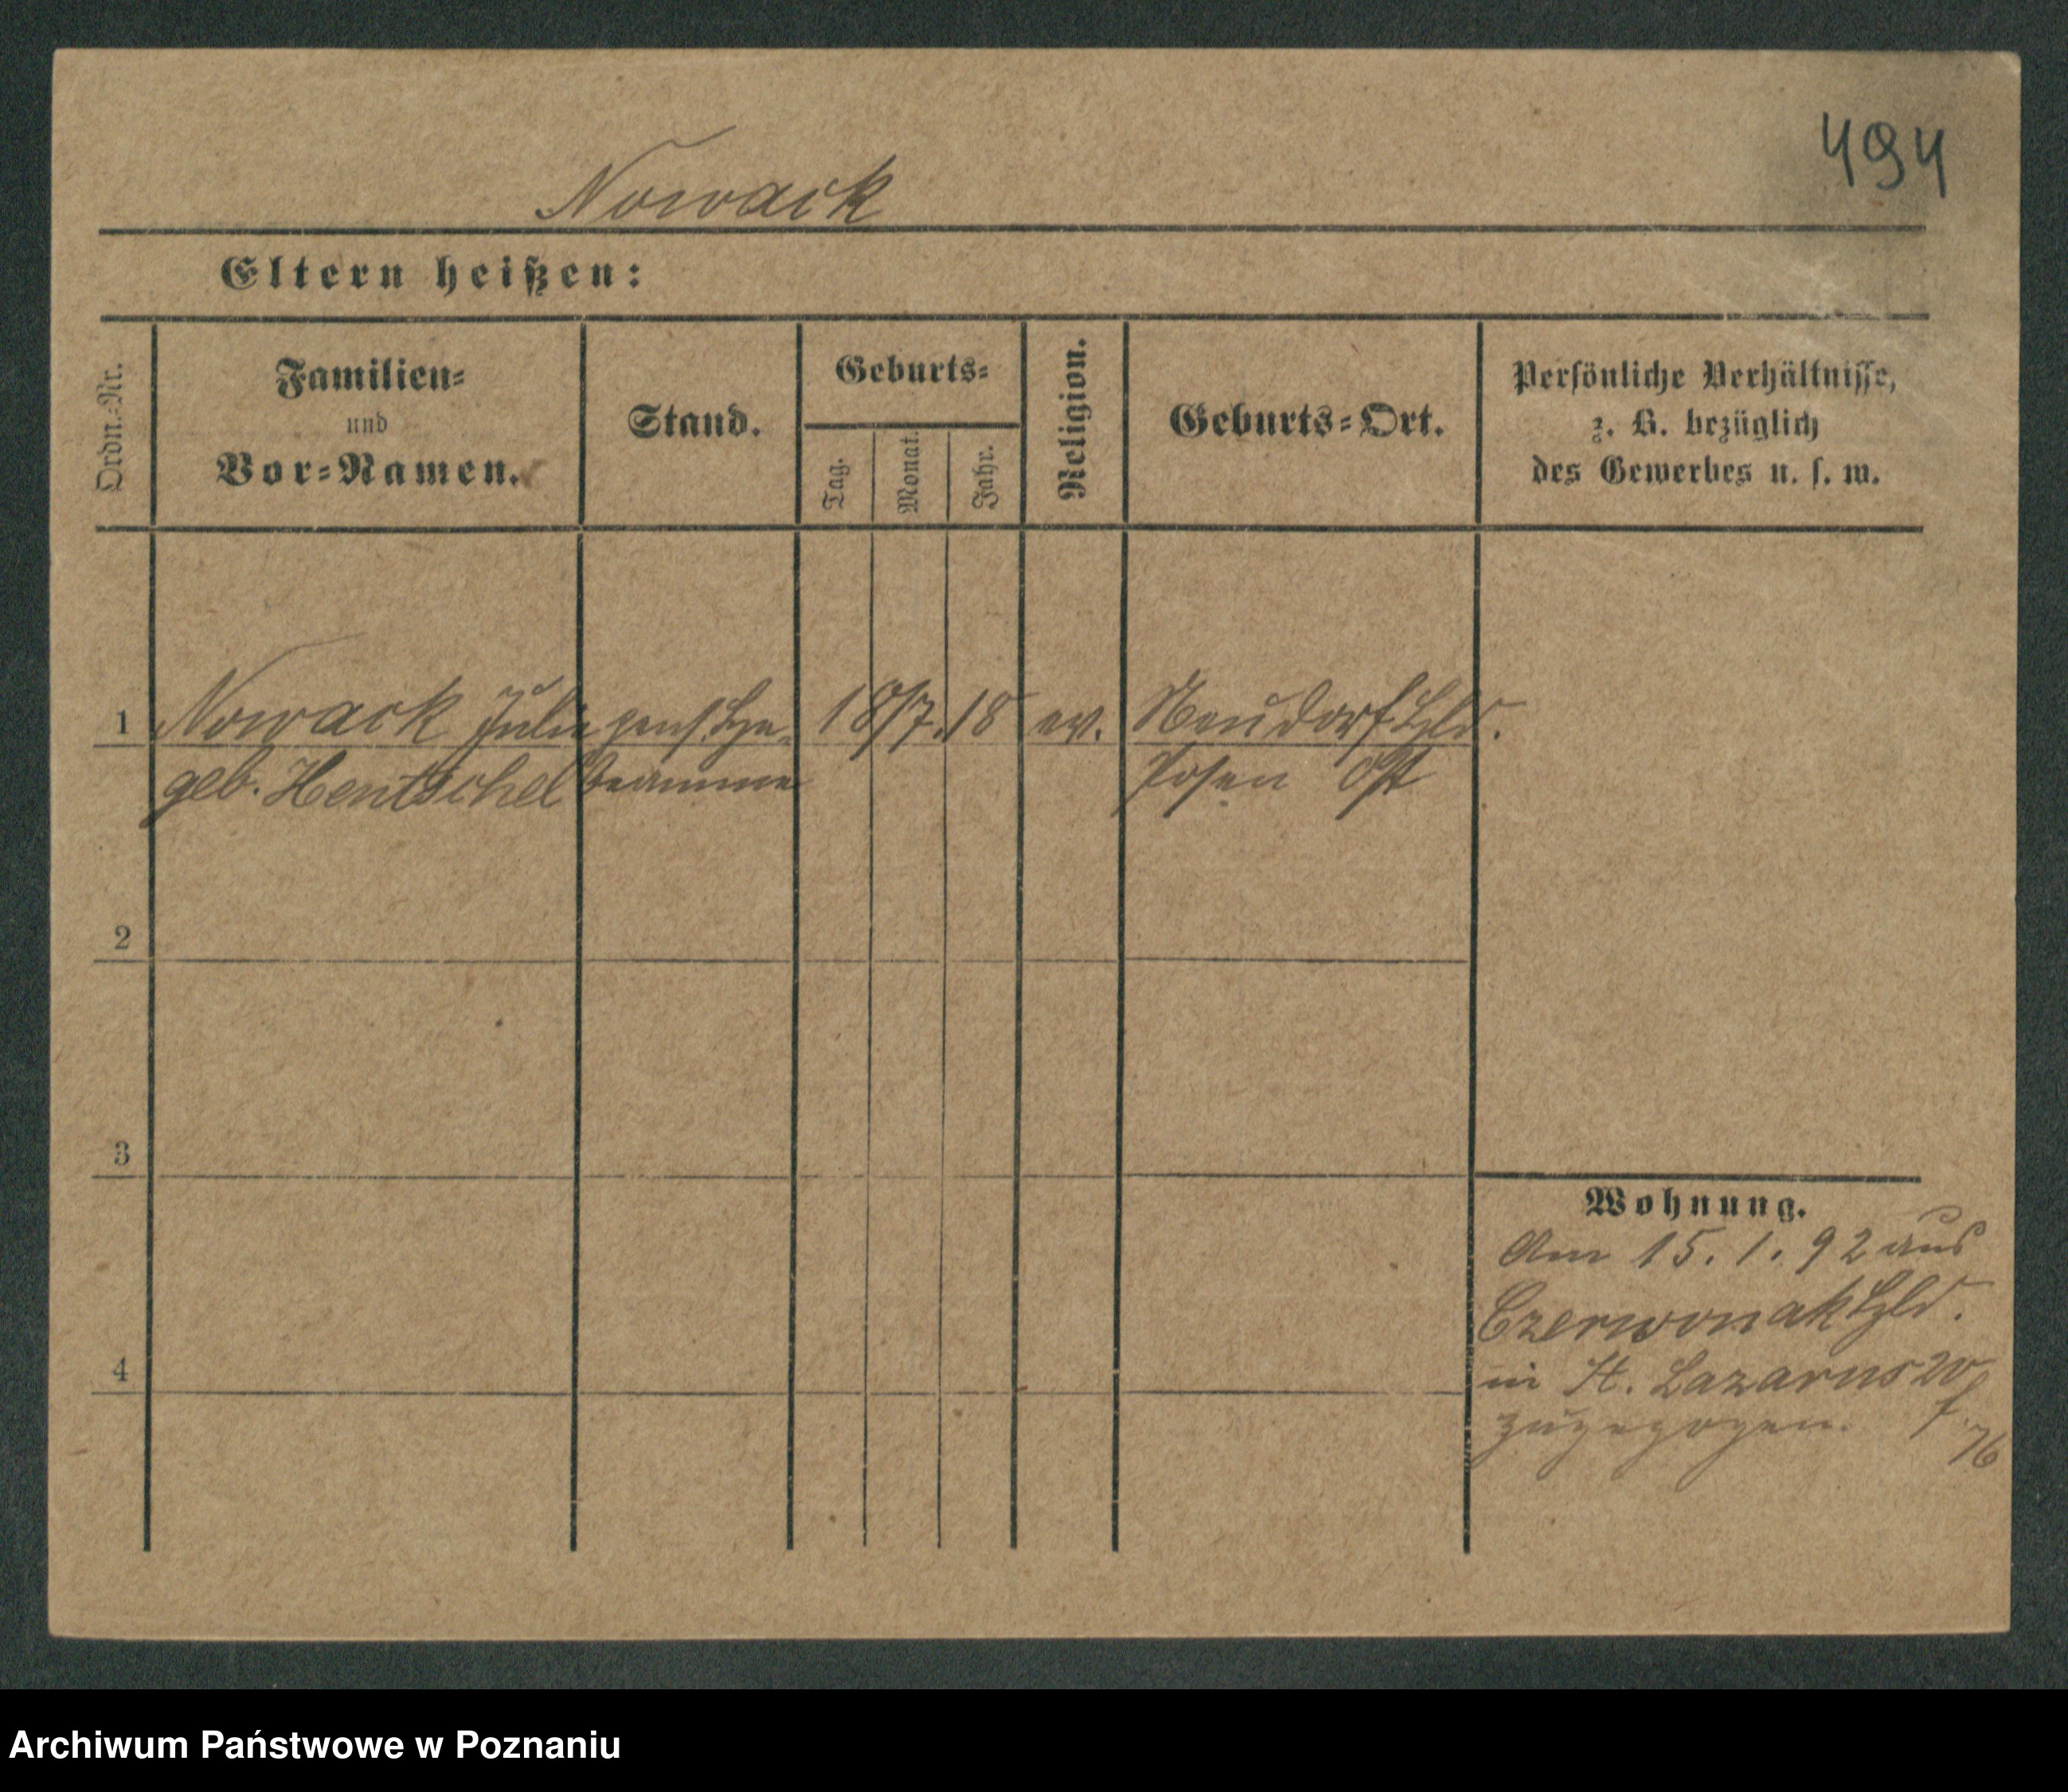 494
Nowack
Eltern heißen:
Ordn.-Nr.
Familien-
und
Vor-Namen.
Stand.
Geburts-
Tag.
Monat.
Jahr.
Religion.
Geburts-Ort.
Persönliche Verhältnisse,
z. B. bezüglich
des Gewerbes u. s. w.
1 Nowack Julie pens. He- 18/7. 18 ev. Neudorf Hld.
geb. Hentschel beamme Posen Ost
2
3
4
Wohnung.
Am 15. 1. 92 aus
Czerwonak Hld.
in St. Lazarus 20
zugezogen. f. 76
Archiwum Państwowe w Poznaniu